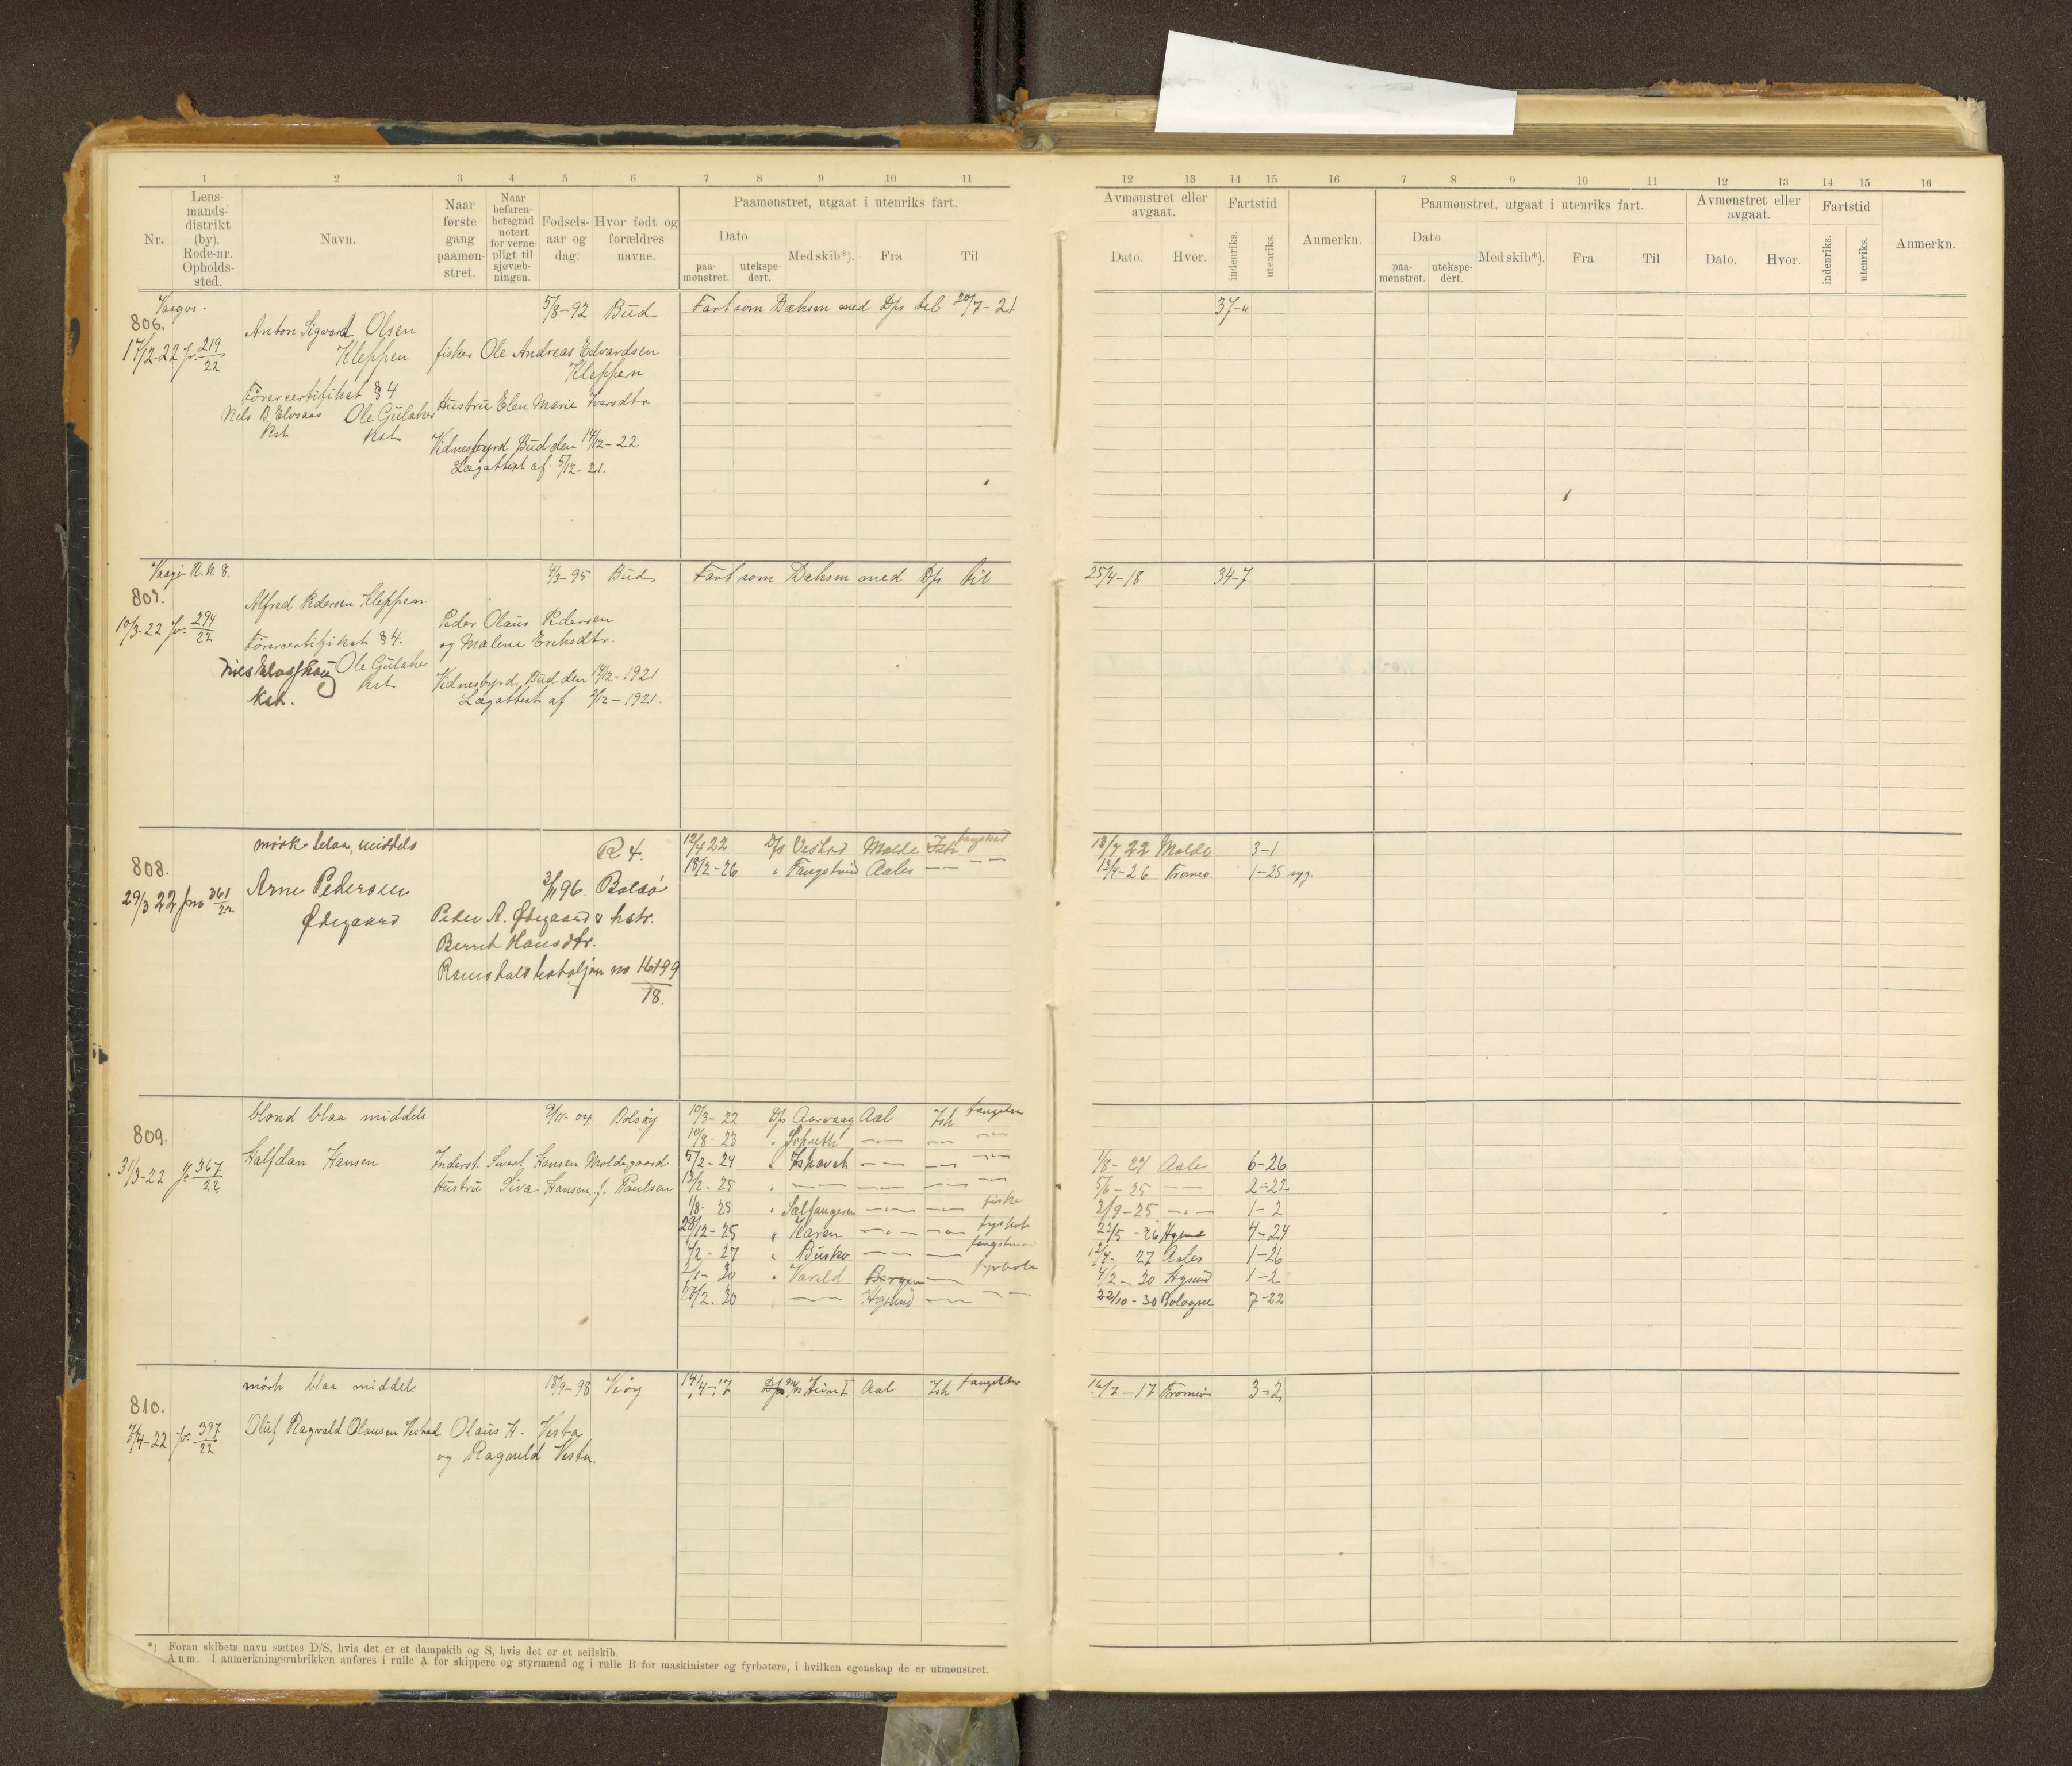 1 2 3 4 5 6 7 8 9 10 11
Nr.
Lens-
mands-
distrikt
(by).
Rode-nr.
Opholds-
sted.
Navn.
Naar
første
gang
paamøn-
stret.
Naar
befaren-
hetsgrad
notert
for verne-
pligt til
sjøvæb-
ningen.
Fødsels-
aar og
dag.
Hvor født og
forældres
navne.
Paamønstret, utgaat i utenriks fart.
Dato
paa-
mønstret.
utekspe-
dert.
Med skib*).
Fra
Til
806.
17/2-22 fr. 219/22
Anton Sigvard Olsen
Kleppen
Førercertifikat § 4
Ole Gulaker
kst kst
5/8-92 Bud
fisker Ole Andreas Edvardsen
Kleppen
Hustru Elen Marie Iversdtr
Vidnesbyrd Bud den 14/12-22
Lægattest af 5/12-21.
Fart som Dæksm med D/s til 20/7-21
R.N 8.
807.
10/3-22 fr. 294/22
Alfred Pedersen Kleppen
Førercertifikat § 4.
Ole Gulaker
kst
kst.
4/3-95 Bud
Peder Olaus Pedersen
og Malene Eriksdtr.
Vidnesbyrd Bud den 14/12-1921
Lægattest af 2/12-1921.
Fart som Dæksm med D/s til
808.
29/3 22 fra 361/22
mørk blaa, middels
Arne Pedersen
Ødegaard
R 4.
96 Bolsø
Peder A. Ødegaard & hstr.
Berret Hansdtr.
Romsdals bataljon no 16199
18.
12/4 22 D/s Vestad Molde Ish. fangstmd
18/2-26 " Fangstmd Aales — — —
809.
31/3-22 fr. 367/22
blond blaa middels
Halfdan Hansen
9/11-04 Bolsøy
Inderst. Sivert Hansen Moldegaard
Hustru Siva Hansen f. Paulsen
10/3-22 D/s Aarvaag Aal Ish fangstm
10/8-23 " — — —
5/2-24 " Ishavet — — —
12/2-25 " — — — —
1/8-25 " Sælfangeren — — fiske
28/12-25 " Karen — — fyrbøt
4/2-27 " Busko — — fangstm
2/1-30 " Varild Bergen — fyrbøt
27/2-30 " — Hgsund — —
810.
7/4-22 fr. 397/22
mørk blaa middels
Oluf Ragvald Olausen Vestad
18/9-98 Veøy
Olaus H. Vesta
og Ragnild Vesta.
14/4-17 D/s Aal Ish fangstm
*) Foran skibets navn sættes D/S, hvis det er et dampskib og S, hvis det er et seilskib.
Anm. I anmerkningsrubrikken anføres i rulle A for skippere og styrmænd og i rulle B for maskinister og fyrbøtere, i hvilken egenskap de er utmønstret.
12 13 14 15 16 7 8 9 10 11 12 13 14 15 16
Avmønstret eller
avgaat.
Dato.
Hvor.
Fartstid
indenriks.
utenriks.
Anmerkn.
Paamønstret, utgaat i utenriks fart.
Dato
paa-
mønstret.
utekspe-
dert.
Med skib*).
Fra
Til
Avmønstret eller
avgaat.
Dato.
Hvor.
Fartstid
indenriks.
utenriks.
Anmerkn.
37-"
25/4-18 34-7
18/7 22 Molde 3-1
13/4-26 Tromsø. 1-25 syg.
1/8-24 Aales 6-26
5/6-25 — 2-22
2/9-25 — 1-2
22/5-26 Hgsund 4-24
12/4-27 Aales 1-26
4/2-30 Hgsund 1-2
22/10-30 Bologne 7-22
16/7-17 Tromsø 3-2